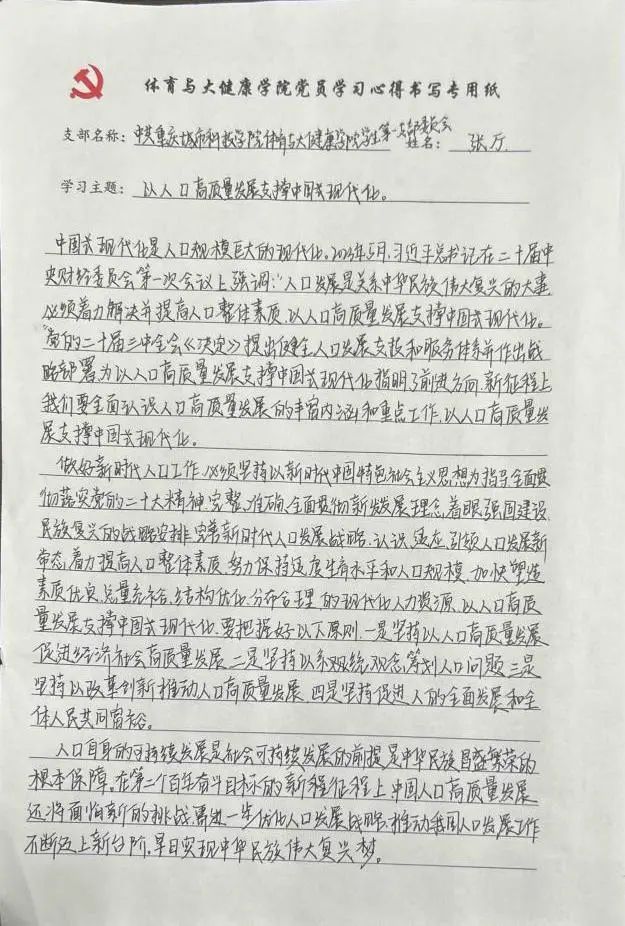 体育与大健康学院党员学习心得书写专用纸
支部名称：中共重庆城市科技学院体育与大健康学院学生第一支部委员会 姓名：张
学习主题：以人口高质量发展支撑中国式现代化。
中国式现代化是人口规模巨大的现代化。2023年5月，习近平总书记在二十届中
央财经委员会第一次会议上强调："人口发展是关系中华民族伟大复兴的大事，
必须着力解决并提高人口整体素质，以人口高质量发展支撑中国式现代化。
"党的二十届三中全会《决定》提出健全人口发展支持和服务体系并作出战
略部署为以人口高质量发展支撑中国式现代化指明了前进方向，新征程上
我们要全面认识人口高质量发展的丰富内涵和重点工作，以人口高质量发
展支撑中国式现代化。
做好新时代人口工作，必须坚持以新时代中国特色社会主义思想为指导全面贯
彻落实党的二十大精神，完整、准确、全面贯彻新发展理念，着眼强国建设、
民族复兴的战略安排，完善新时代人口发展战略，认识、适应、引领人口发展新
常态，着力提高人口整体素质，努力保持适度生育水平和人口规模，加快塑造
素质优良、总量充裕、结构优化、分布合理的现代化人力资源，以人口高质
量发展支撑中国式现代化，要把握好以下原则，一是坚持以人口高质量发展
促进经济社会高质量发展，二是坚持以系统观念筹划人口问题，三是
坚持以改革创新推动人口高质量发展，四是坚持促进人的全面发展和全
体人民共同富裕。
人口自身的可持续发展是社会可持续发展的前提，是中华民族昌盛繁荣的
根本保障，在第二个百年奋斗目标的新征程上，中国人口高质量发展
还将面临新的挑战，需进一步优化人口发展战略，推动我国人口发展工作
不断迈上新台阶，早日实现中华民族伟大复兴梦。